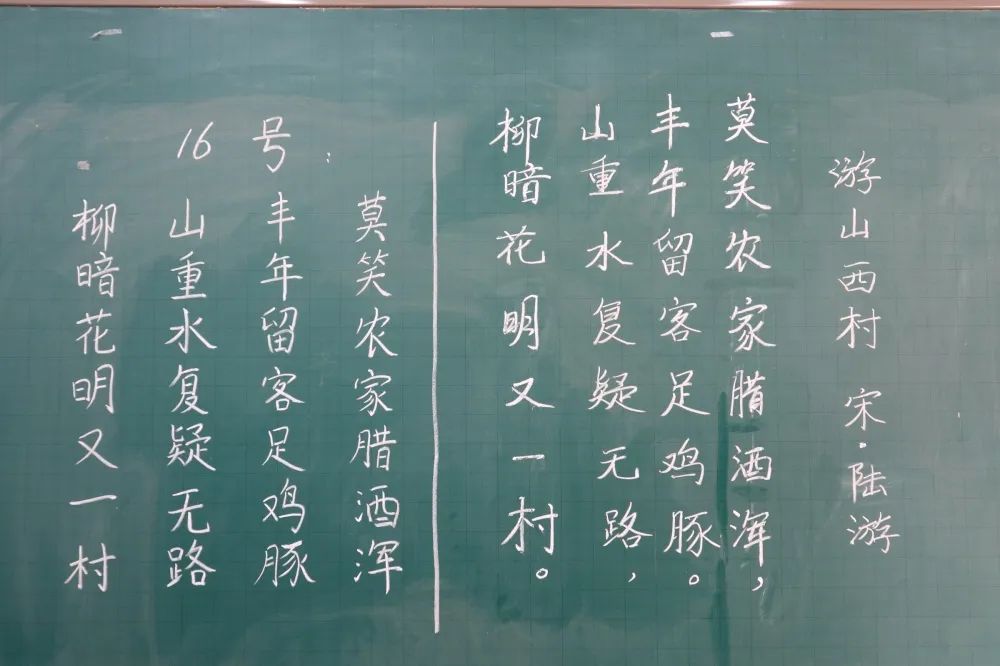 游山西村 宋·陆游
莫笑农家腊酒浑，
丰年留客足鸡豚。
山重水复疑无路，
柳暗花明又一村。
16号：
莫笑农家腊酒浑
丰年留客足鸡豚
山重水复疑无路
柳暗花明又一村